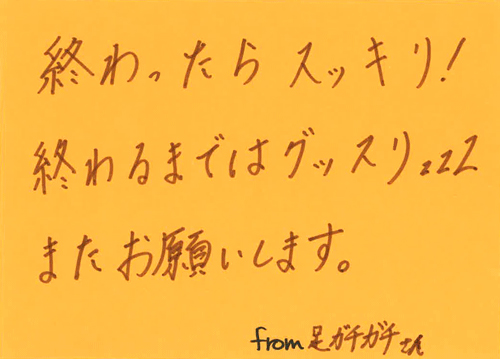 終わったらスッキリ!
終わるまではグッスリzzz
またお願いします。
from 足ガチガチさん